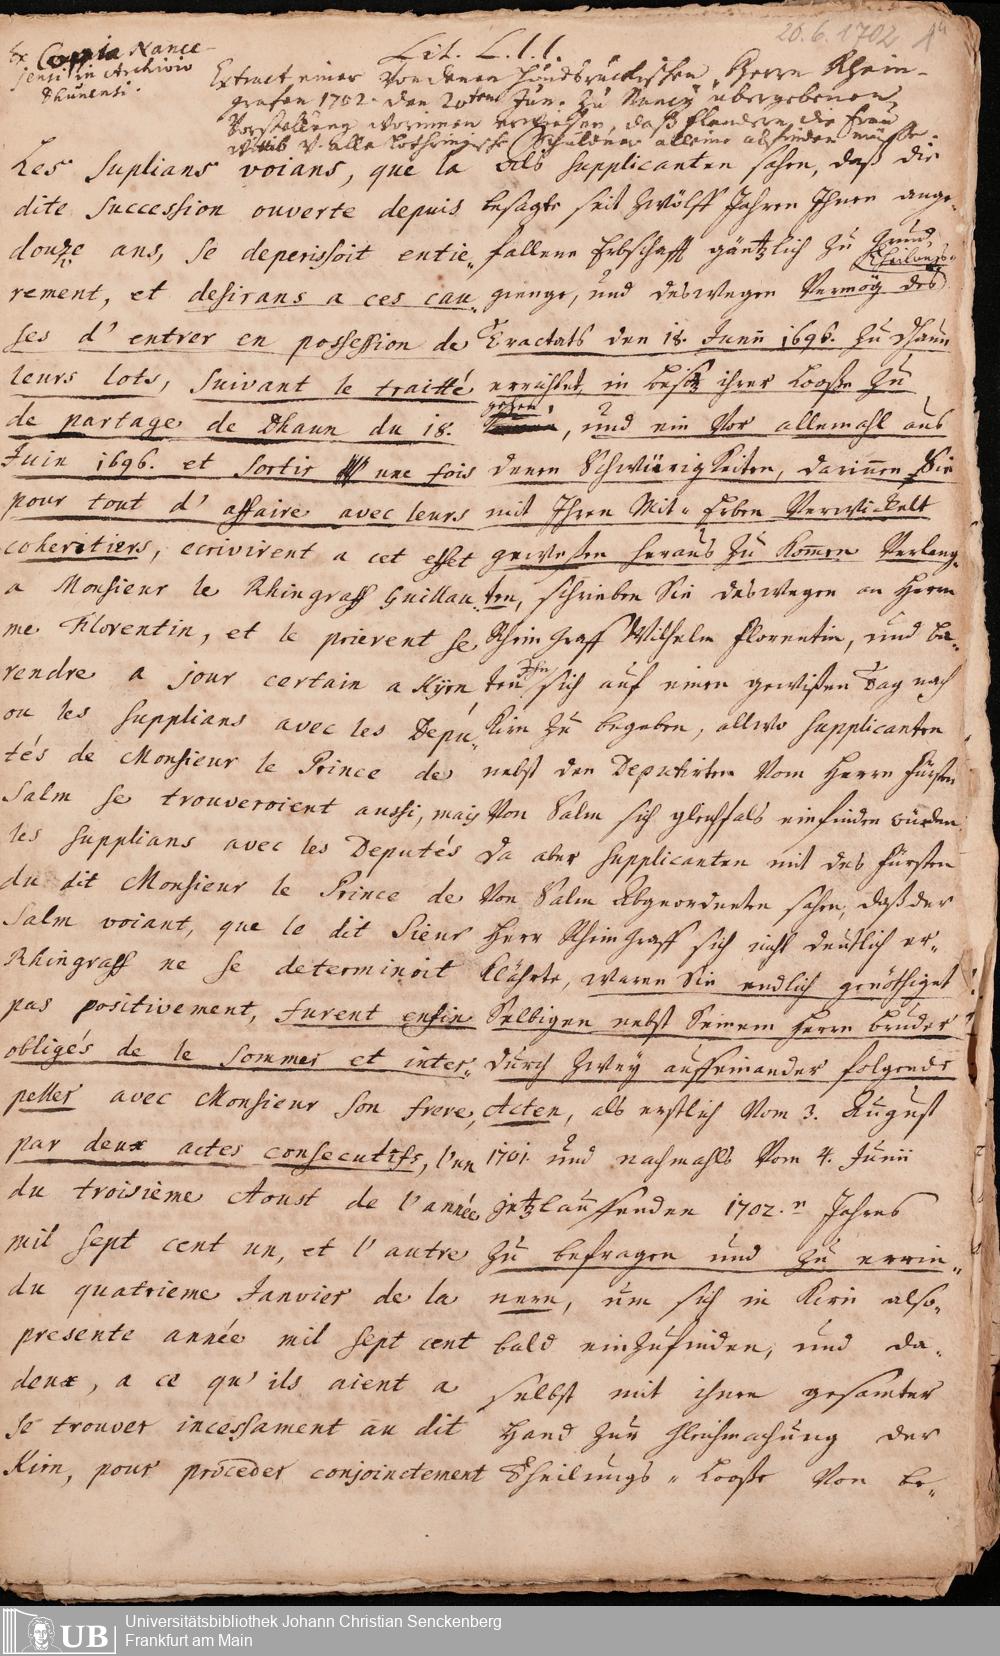 20.6.1702
Ex Coppia Nance-
jensi in Archivio
Dhunensi.
Lit. L.l.l.
Extract einer von denen Hundsrückischen Herrn Rhein-
grafen 1702. den 20ten Jun. zu Nancy übergebenen
Vorstellung worinnen erwiesen, daß Flandern, die Frau
Wittib v. alle Lothringische Schuldner alleine abfinden müsse.
Les Suplians voians, que la
dite Succession ouverte depuis
douze ans, se deperissoit entie-
rement, et desirans a ces cau-
ses d'entrer en possession de
leurs lots, suivant le traitté
de partage de Dhaun du 18.
Juin 1696. et sortir une fois
pour tout d'affaire avec leurs
coheritiers, ecrivirent a cet effet
a Monsieur le Rhingraff Guillau-
me Florentin, et le prierent se
rendre a jour certain a Kyrn,
ou les Supplians avec les Depu-
tés de Monsieur le Prince de
Salm se trouveroient aussi, mais
les Supplians avec les Deputés
du dit Monsieur le Prince de
Salm voiant, que le dit Sieur
Rhingraff ne se determinoit
pas positivement, furent enfin
obligés de le sommer et inter-
peller avec Monsieur son frere,
par deux actes consecutifs, l'un
du troisième Aoust de l'année
mil sept cent un, et l'autre
du quatrieme Janvier de la
presente année mil sept cent
deux, a ce qu'ils aient a
se trouver incessament au dit
Kirn, pour proceder conjoinctement
Als Supplicanten sahen, daß die
besagte seit zwölff Jahren Ihnen ange-
fallene Erbschafft gäntzlich zu Grund
gienge, und deswegen Vermög des Theilungs-
Tractats den 18. Junii 1696. zu Dhaun
errichtet, in besitz ihrer Looße zu
gehen, und ein Vor allemahl aus
denen Schwürigkeiten, darinnen Sie
mit Ihren Mit-Erben Verwickelt
geweßen heraus zu kommen Verlang-
ten, schrieben Sie deswegen an Herrn
Rhein Graff Wilhelm Florentin, und ba-
ten Ihn sich auf einen gewißen Tag nach
Kirn zu begeben, allwo Supplicanten
nebst den Deputirten Vom Herrn Fürsten
Von Salm sich gleichfals einfinden würden
da aber Supplicanten mit des Fürsten
Von Salm Abgeordneten sahen, daß der
Herr Rhein Graff sich nicht deutlich er-
klährte, waren Sie endlich genöthiget
Selbigen nebst Seinem Herrn Bruder
durch zwey auffeinander folgende
Acten, als erstlich Vom 3. August
1701. und nachmahls Vom 4. Junii
jetzlauffenden 1702.n Jahres
zu befragen und zu errin-
nern, um sich in Kirn also-
bald einzufinden, und da-
selbst mit ihnen gesamter
Hand zur Gleichmachung der
Theilungs-Looße Von be-
Universitätsbibliothek Johann Christian Senckenberg
Frankfurt am Main
UB